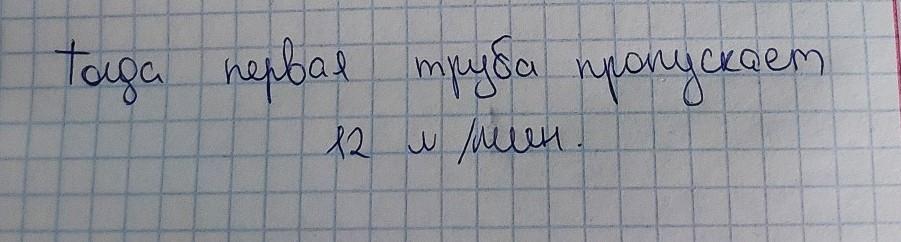 Тогда первая труба пропускает
12 л/мин.